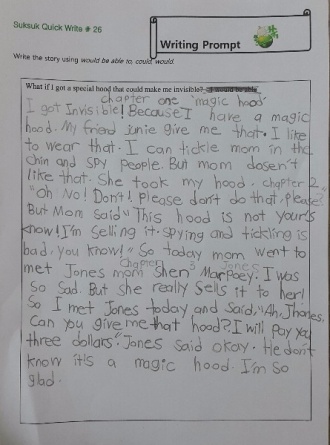 Suksuk Quick Write # 26
Writing Prompt
Write the story using would be able to, could, would.
What if I got a special hood that could make me invisible?
chapter one "magic hood"
I got Invisible! Because I have a magic
hood. My friend junie give me that. I like
to wear that. I can tickle mom in the
chin and spy people. But mom dosen't
like that. She took my hood. chapter 2
"Oh No! Don't! Please don't do that, please"
But Mom said "This hood is not your's
know! I'm selling it. spying and tickling is
bad, you know!" So today mom went to
chapter 3 Jones
met Jones mom Shen Marpoey. I was
so sad. But she really sells it to her!
So I met Jones today and said, "Ah, Jhones,
Can you give me that hood? I will pay you
three dollars". Jones said okay. He don't
know it's a magic hood. I'm so
glad.